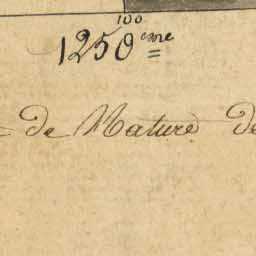 100
1250eme
de Mature de